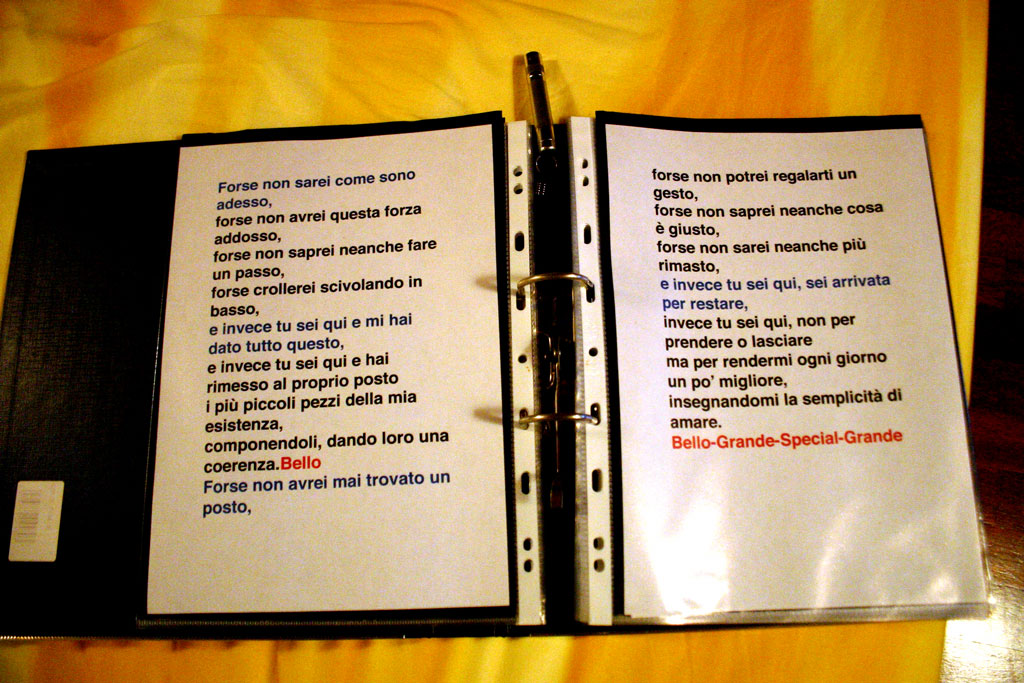 Forse non sarei come sono
adesso,
forse non avrei questa forza
addosso,
forse non saprei neanche fare
un passo,
forse crollerei scivolando in
basso,
e invece tu sei qui e mi hai
dato tutto questo,
e invece tu sei qui e hai
rimesso al proprio posto
i più piccoli pezzi della mia
esistenza,
componendoli, dando loro una
coerenza.Bello
Forse non avrei mai trovato un
posto,
forse non potrei regalarti un
gesto,
forse non saprei neanche cosa
è giusto,
forse non sarei neanche più
rimasto,
e invece tu sei qui, sei arrivata
per restare,
invece tu sei qui, non per
prendere o lasciare
ma per rendermi ogni giorno
un po' migliore,
insegnandomi la semplicità di
amare.
Bello-Grande-Special-Grande